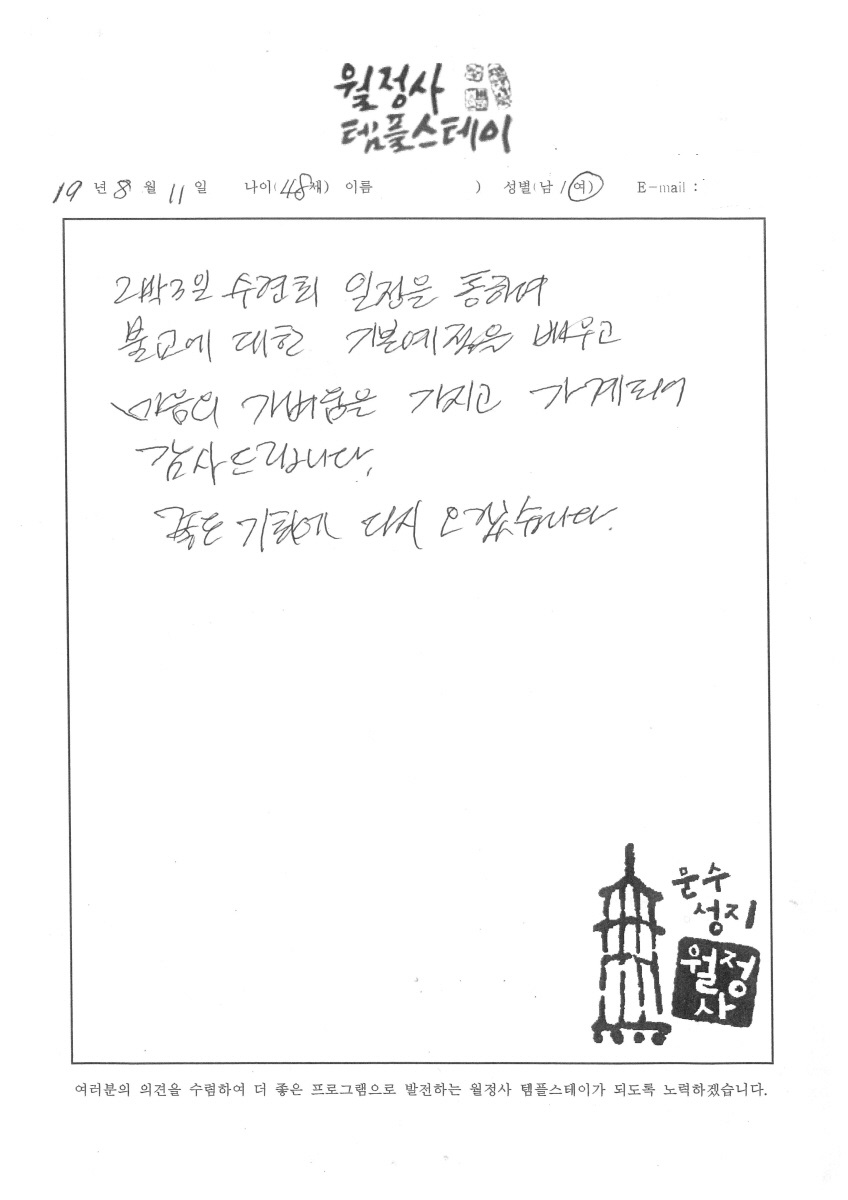 월정사
템플스테이
19 년 8 월 11 일 나이(48세) 이름 ) 성별(남 / 여) E-mail :
2박3일 수련회 일정을 통하여
불교에 대한 기본예절을 배우고
마음의 가벼움은 가지고 가게되어
감사드립니다.
좋은 기회에 다시 오겠습니다.
문수
성지
월정
사
여러분의 의견을 수렴하여 더 좋은 프로그램으로 발전하는 월정사 템플스테이가 되도록 노력하겠습니다.